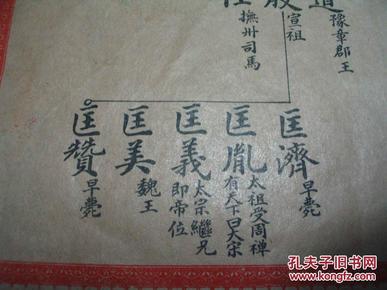 豫章郡王
宣祖
撫州司馬
匡濟
早薨
匡胤
太祖受周禪
有天下曰大宋
匡義
太宗繼兄
即帝位
匡美
魏王
匡贊
早薨
孔夫子旧书网